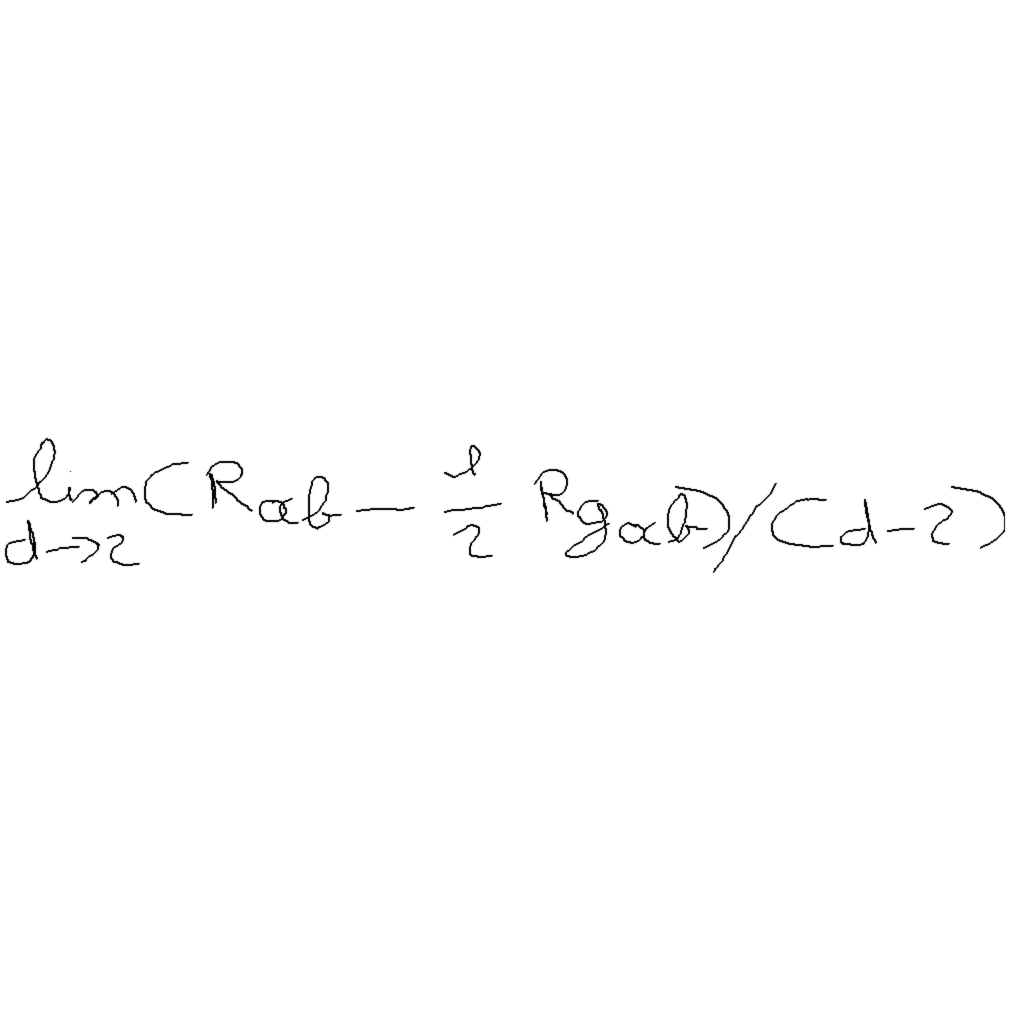 lim_{d→2} (R_{ab} − \frac{1}{2} R g_{ab})/(d−2)